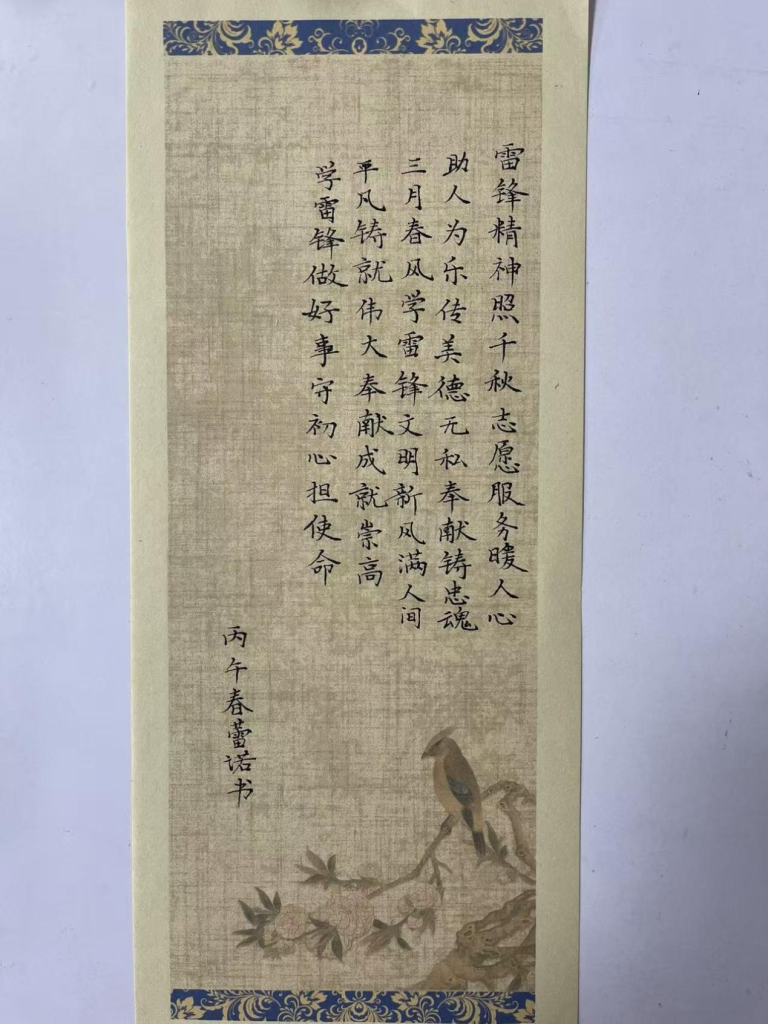 雷锋精神照千秋志愿服务暖人心
助人为乐传美德无私奉献铸忠魂
三月春风学雷锋文明新风满人间
平凡铸就伟大奉献成就崇高
学雷锋做好事守初心担使命
丙午春蕾诺书